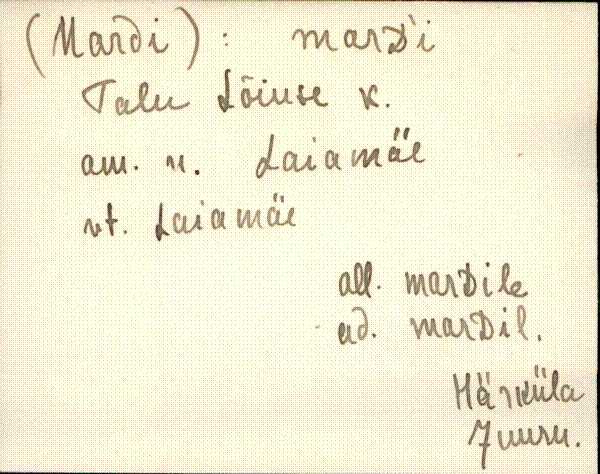 (Mardi) : marD`i
Talu Lõiuse k.
am. n. Laiamäe
vt. Laiamäe
all. marDile
ad. marDil.
Härküla
Juuru.